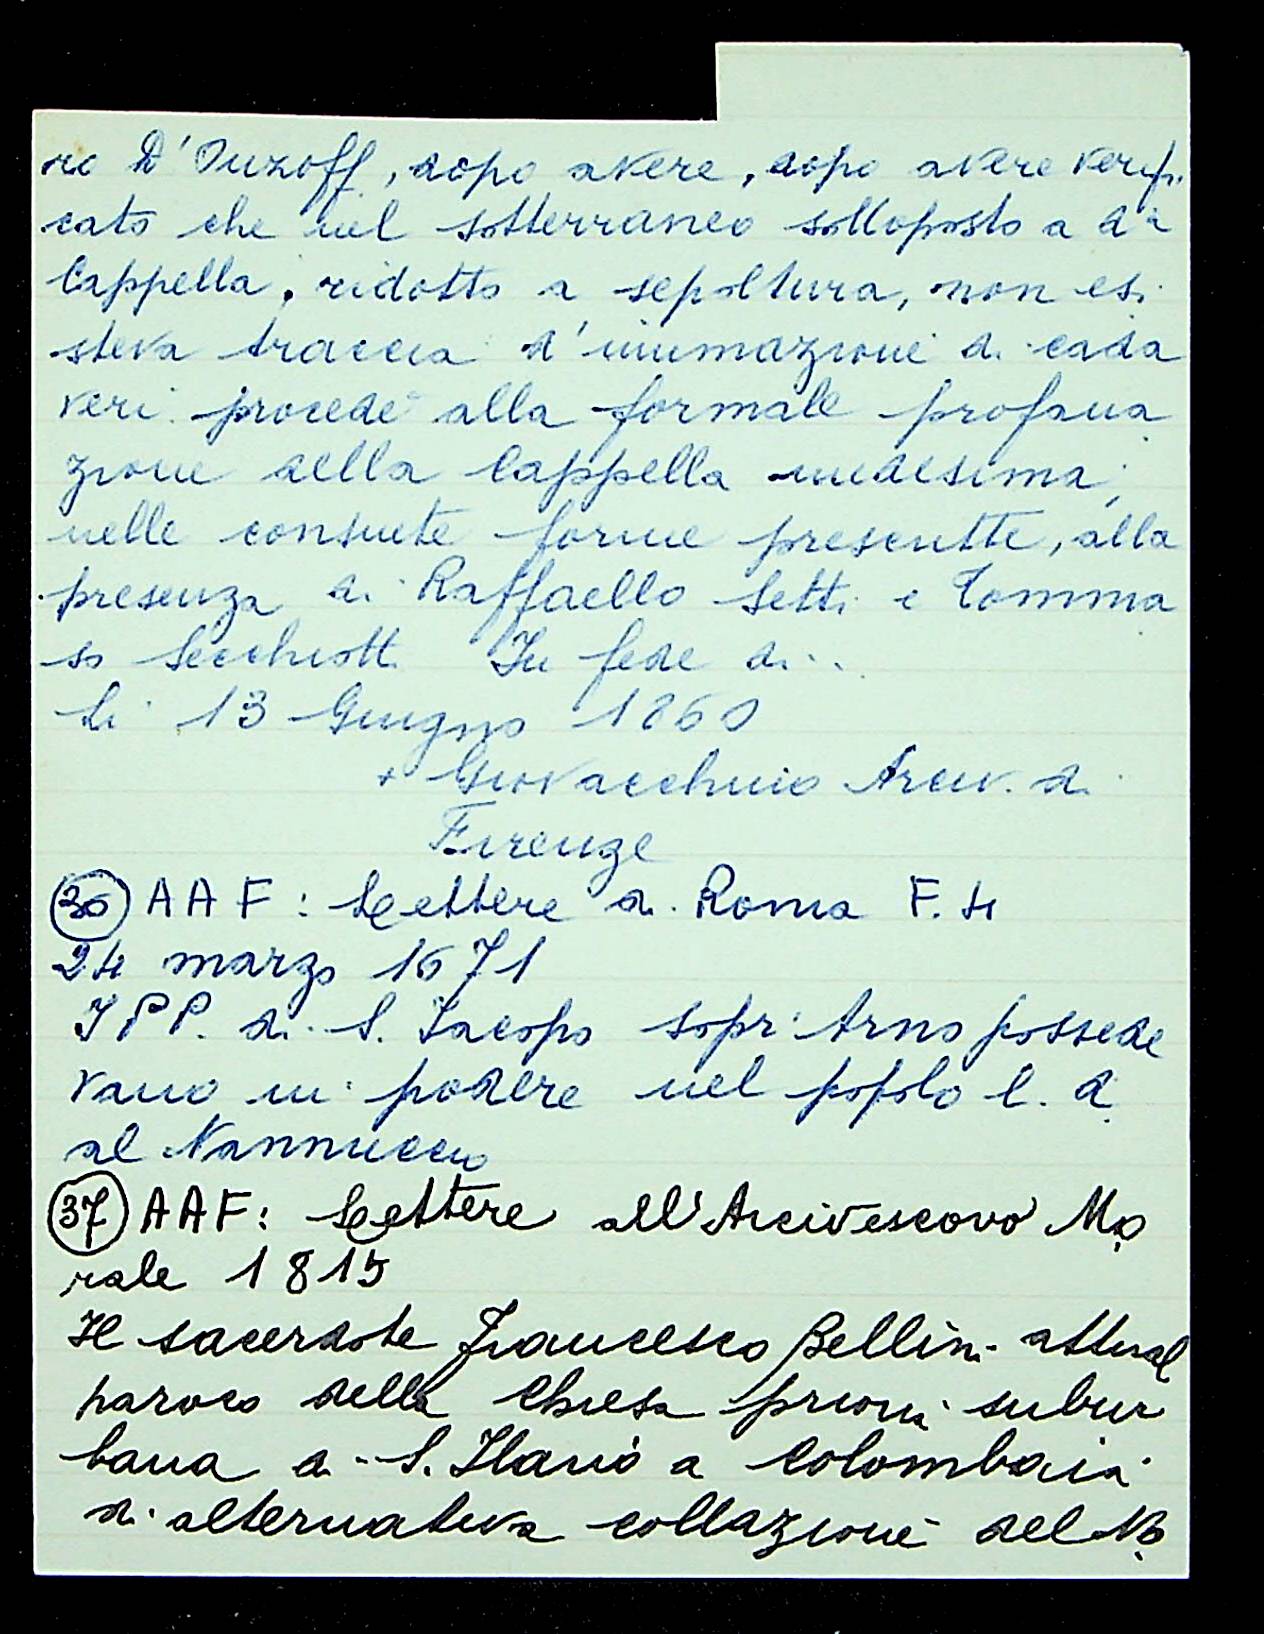 re D'Ouzoff, dopo avere, dopo avere verifi
cato che nel sotterraneo sottoposto a da
Cappella, ridotto a sepoltura, non esi
steva traccia d'inumazione di cada
veri procede alla formale profana
zione della Cappella medesima,
nelle consuete forme prescritte, alla
presenza di Raffaello Setti e Tomma
so Secchiotti In fede di...
Li 13 Giugno 1860
+ Giovacchino Arciv. di
Firenze
36 AAF: Lettere di Roma F. 4
24 marzo 1671
I PP. di S. Jacopo sopr'Arno possede
vano un podere nel popolo C. d.
al Nannuccio
37 AAF: Lettere all'Arcivescovo Mo
rale 1815
Il sacerdote Francesco Bellini attual
paroco della Chiesa prioria subur
bana di S. Ilario a Colombaia
di alternativa collazione del No